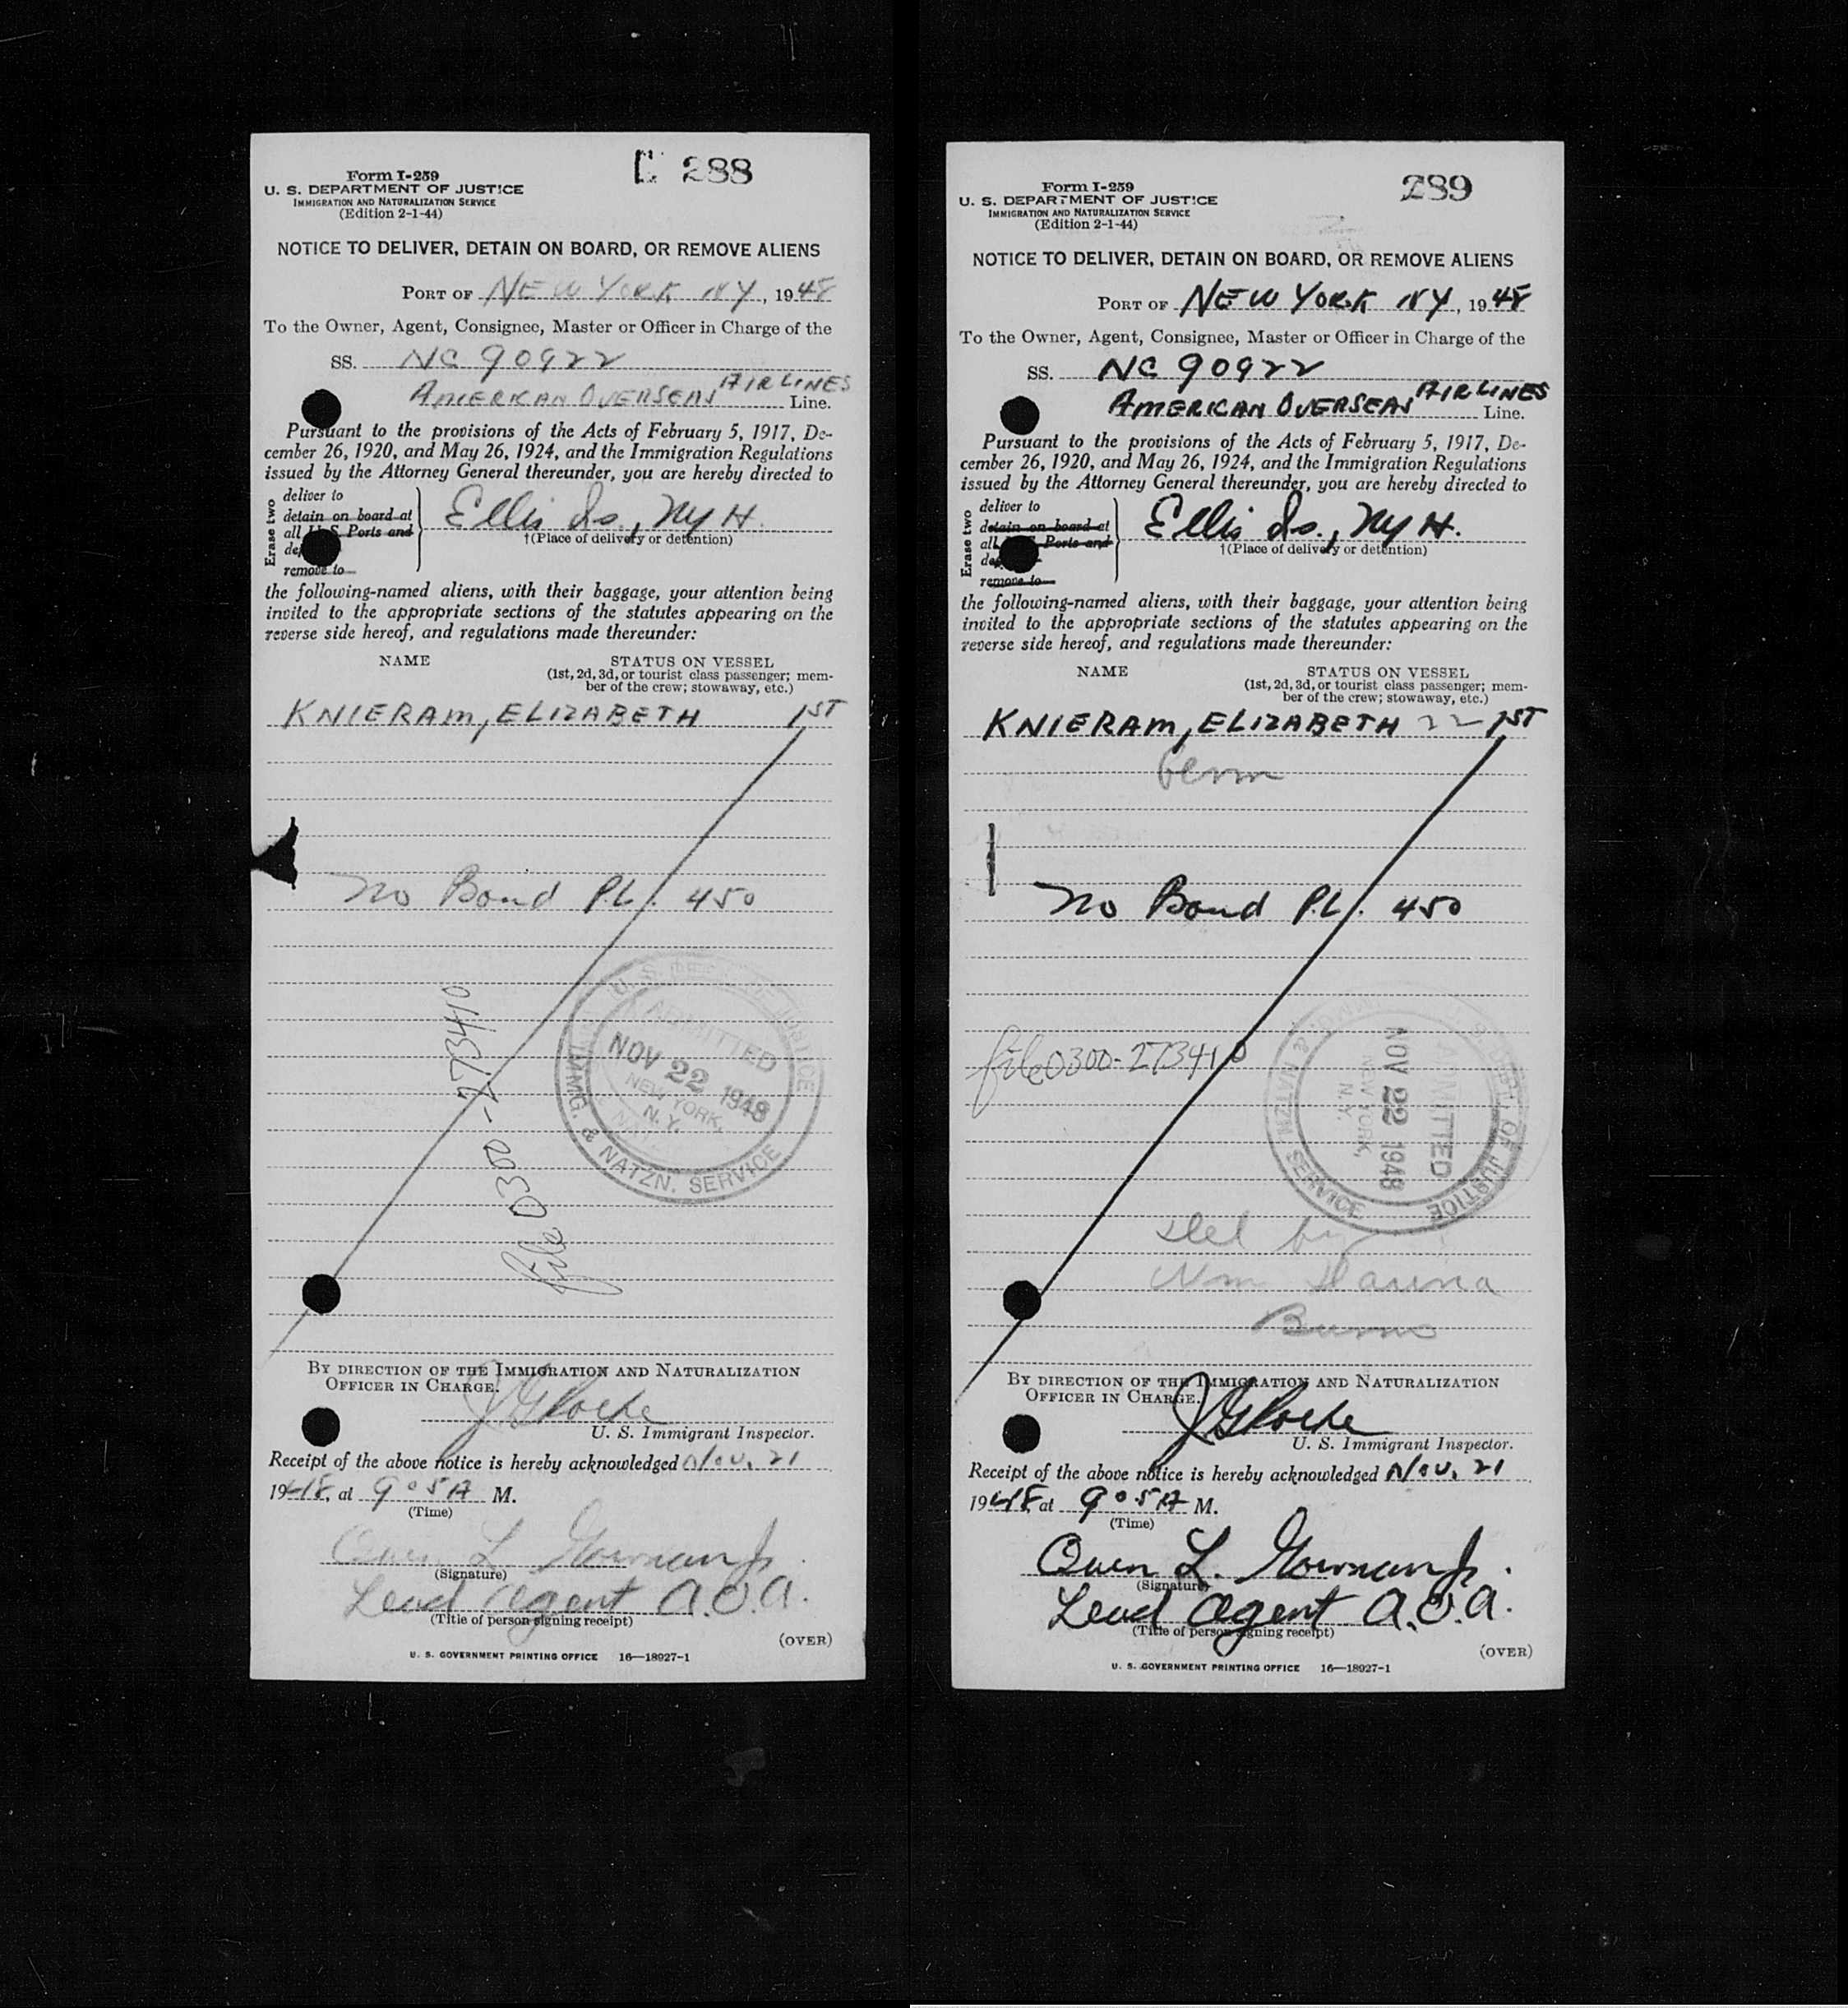 288
Form I-259
U. S. DEPARTMENT OF JUSTICE
IMMIGRATION AND NATURALIZATION SERVICE
(Edition 2-1-44)
NOTICE TO DELIVER, DETAIN ON BOARD, OR REMOVE ALIENS
PORT OF NEW YORK NY, 1948
To the Owner, Agent, Consignee, Master or Officer in Charge of the
SS. NC 90922
AMERICAN OVERSEAS AIRLINES Line.
Pursuant to the provisions of the Acts of February 5, 1917, De-
cember 26, 1920, and May 26, 1924, and the Immigration Regulations
issued by the Attorney General thereunder, you are hereby directed to
Erase two
deliver to
detain on board at
all U.S. Ports and
remove to
Ellis Is., NYH.
†(Place of delivery or detention)
the following-named aliens, with their baggage, your attention being
invited to the appropriate sections of the statutes appearing on the
reverse side hereof, and regulations made thereunder:
NAME STATUS ON VESSEL
(1st, 2d, 3d, or tourist class passenger; mem-
ber of the crew; stowaway, etc.)
KNIERAM, ELIZABETH 1ST
No Bond P.L. 450
file 0300-273410
U. S. DEPT. OF JUSTICE
ADMITTED
NOV 22 1948
NEW YORK,
N. Y.
IMMG. & NATZN. SERVICE
BY DIRECTION OF THE IMMIGRATION AND NATURALIZATION
OFFICER IN CHARGE.
U. S. Immigrant Inspector.
Receipt of the above notice is hereby acknowledged Nov. 21
1948, at 9 05 A M.
(Time)
Owen L. Jr.
(Signature)
Lead Agent A.O.A.
(Title of person signing receipt)
(OVER)
U. S. GOVERNMENT PRINTING OFFICE 16—18927-1
289
Form I-259
U. S. DEPARTMENT OF JUSTICE
IMMIGRATION AND NATURALIZATION SERVICE
(Edition 2-1-44)
NOTICE TO DELIVER, DETAIN ON BOARD, OR REMOVE ALIENS
PORT OF NEW YORK NY, 1948
To the Owner, Agent, Consignee, Master or Officer in Charge of the
SS. NC 90922
AMERICAN OVERSEAS AIRLINES Line.
Pursuant to the provisions of the Acts of February 5, 1917, De-
cember 26, 1920, and May 26, 1924, and the Immigration Regulations
issued by the Attorney General thereunder, you are hereby directed to
Erase two
deliver to
detain on board at
all Ports and
remove to
Ellis Is., NYH.
†(Place of delivery or detention)
the following-named aliens, with their baggage, your attention being
invited to the appropriate sections of the statutes appearing on the
reverse side hereof, and regulations made thereunder:
NAME STATUS ON VESSEL
(1st, 2d, 3d, or tourist class passenger; mem-
ber of the crew; stowaway, etc.)
KNIERAM, ELIZABETH 22 1ST
Germ
No Bond P.L. 450
file 0300-273410
U. S. DEPT. OF JUSTICE
ADMITTED
NOV 22 1948
NEW YORK,
N. Y.
IMMG. & NATZN. SERVICE
Del by
BY DIRECTION OF THE IMMIGRATION AND NATURALIZATION
OFFICER IN CHARGE.
U. S. Immigrant Inspector.
Receipt of the above notice is hereby acknowledged Nov. 21
1948, at 9 05 A M.
(Time)
Owen L. Jr.
(Signature)
Lead Agent A.O.A.
(Title of person signing receipt)
(OVER)
U. S. GOVERNMENT PRINTING OFFICE 16—18927-1